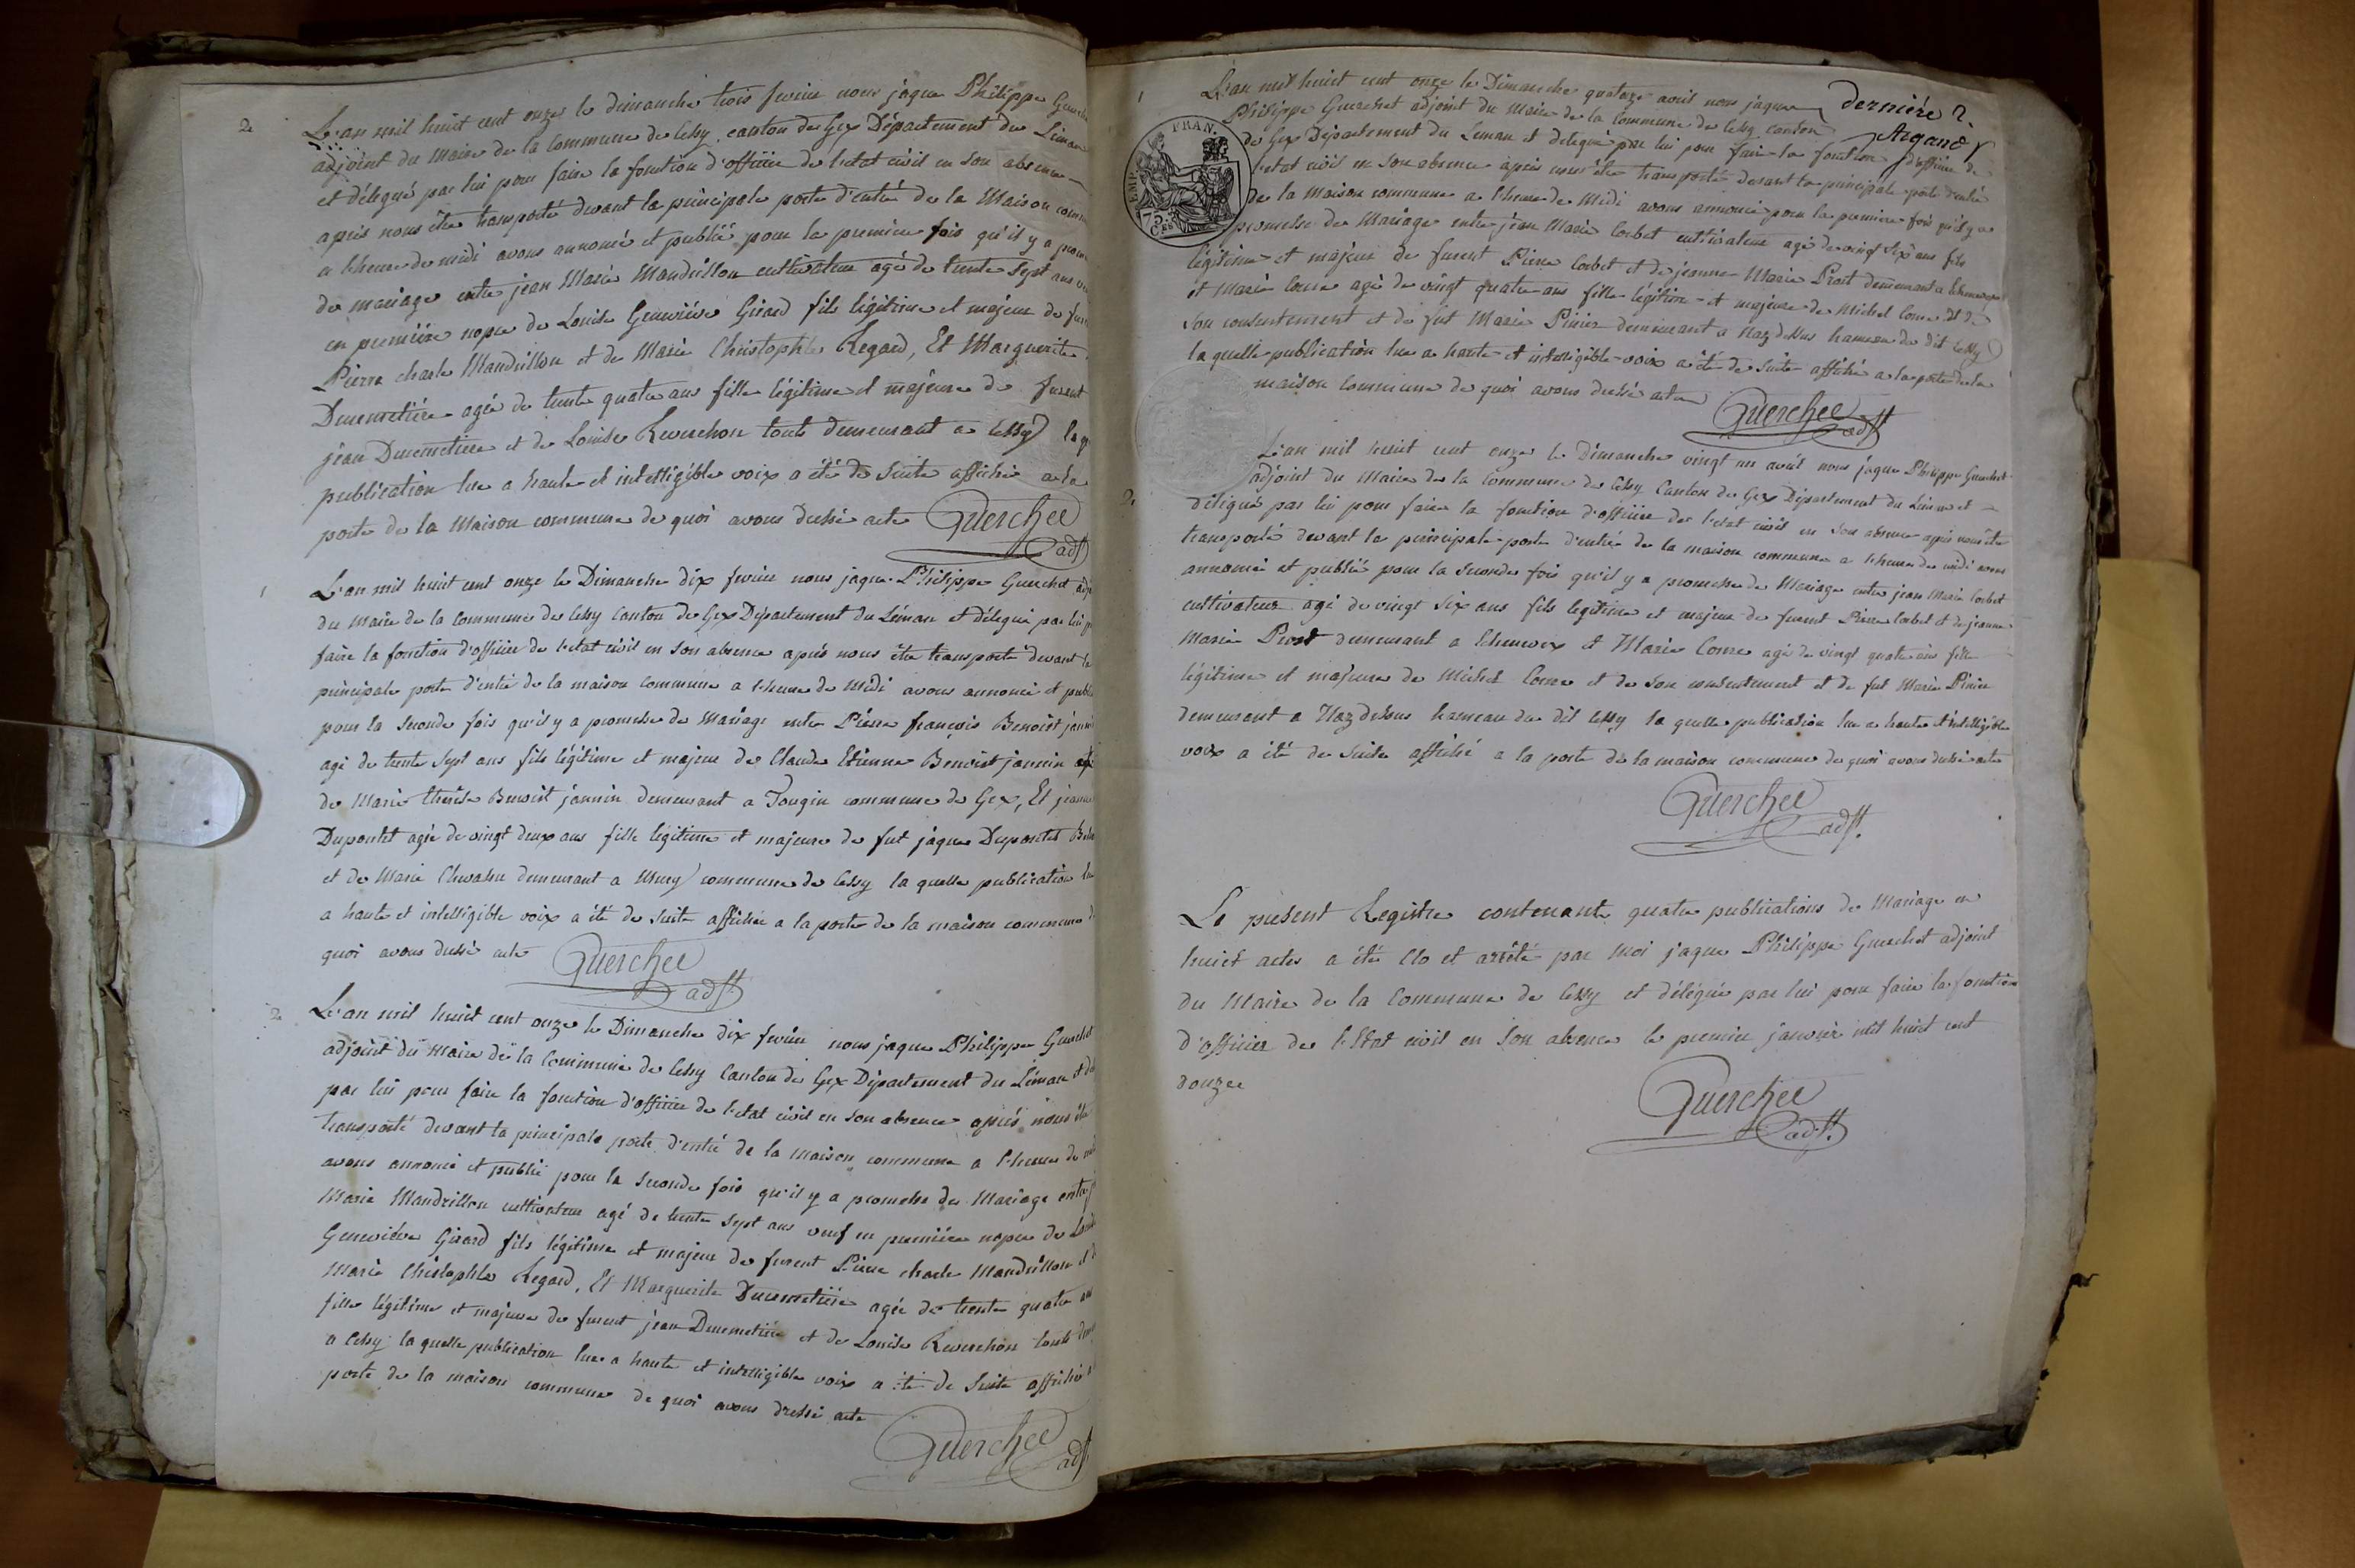 2
L'an mil huit cent onze le dimanche trois fevrier nous jaque Philippe
adjoint du Maire de la Commune de Cessy, canton de Gex Département du Léman
et délégué par lui pour faire la fonction d'officier de l'etat civil en son absence
apres nous être transporté devant la principale porte d'entré de la Maison
a l'heure de midi avons annoncé et publié pour la premiere fois qu'il y a
de mariage entre jean Marie Mandrillon cultivateur agé de trente sept ans
en premiére nopce de Louise Geneviéve Girard fils légitime et majeur de
Pierre charle Mandrillon et de Marie Christophle Regard, Et Marguerite
Ducemetiére agée de trente quatre ans fille légitime et majeure de furent
jean Ducemetiere et de Louise Reverchon touts demeurant a Cessy
publication lue a haute et intelligible voix a été de suite affichée a la
porte de la Maison commune de quoi avons dressé acte Guerchee
adjt
1
L'an mil huit cent onze le Dimanche dix fevrier nous jaque Philippe Guerchet
du Maire de la Commune de Cessy Canton de Gex Département du Léman et délégué par lui
faire la fonction d'officier de l'etat civil en son absence aprés nous être transporté devant
principale porte d'entré de la maison commune a l'heure de Midi avons annoncé et
pour la seconde fois qu'il y a promesse de Mariage entre Pierre françois Benoist
agé de trente sept ans fils légitime et majeur de Claude Etienne Benoist jannin
de Marie thérése Benoist jannin demeurant a Tougin commune de Gex, Et
Dupontet agée de vingt deux ans fille légitime et majeure de fut jaque Dupontet
et de Marie demeurant a commune de Cessy la quelle publication
a haute et intelligible voix a été de suite affichée a la porte de la maison commune
quoi avons dressé acte Guerchee
adjt
2
L'an mil huit cent onze le Dimanche dix fevrier nous jaque Philippe
adjoint du maire de la Commune de Cessy Canton de Gex Département du Léman
par lui pour faire la fonction d'officier de l'etat civil en son absence aprés nous
transporté devant la principale porte d'entré de la maison commune a l'heure de
avons annoncé et publié pour la seconde fois qu'il y a promesse de Mariage entre
Marie Mandrillon cultivateur agé de trente sept ans veuf en premiére nopce de
Geneviéve Girard fils légitime et majeur de furent Pierre charle Mandrillon
Marie Christophle Regard, Et Marguerite Ducemetiére agée de trente quatre
fille légitime et majeure de furent jean Ducemetiére et de Louise Reverchon touts
a Cessy la quelle publication lue a haute et intelligible voix a été de suite
porte de la maison commune de quoi avons dressé acte
Guerchee
adjt
derniére 2.
Argand
FRAN.
EMP.
75. Ces
1
L'an mil huit cent onze le Dimanche quatoze avril nous jaque
Philippe Guerchet adjoint du Maire de la Commune de Cessy canton
de Gex Département du Leman et delegué par lui pour faire la fonction d'officier de
l'etat civil en son absence aprés nous être transporté devant la principale porte d'entré
de la Maison commune a l'heure de Midi avons annoncé pour la premiere fois qu'il y a
promesse de Mariage entre jean Marie Corbet cultivateur agé de vingt six ans fils
légitime et majeur de furent Pierre Corbet et de jeanne Marie Prost demeurant a
et Marie agé de vingt quatre ans fille légitime et majeure de Michel et de
son consentement et de fut Marie demeurant a Naz dessus hameau du dit Cessy
la quelle publication lue a haute et intelligible voix a été de suite affiché a la porte de la
maison Commune de quoi avons dressé acte Guerchee
adjt
2
L'an mil huit cent onze le Dimanche vingt un avril nous jaque Philippe Guerchet
adjoint du Maire de la Commune de Cessy Canton de Gex Département du Léman et
délégué par lui pour faire la fonction d'officier de l'etat civil en son absence aprés nous être
transporté devant la principale porte d'entré de la maison commune a l'heure de midi avons
annoncé et publié pour la seconde fois qu'il y a promesse de Mariage entre jean Marie Corbet
cultivateur agé de vingt six ans fils legitime et majeur de furent Pierre Corbet et de jeanne
Marie Prost demeurant a et Marie agé de vingt quatre ans fille
légitime et majeure de Michel et de son consentement et de fut Marie
demeurant a Naz dessus hameau du dit Cessy la quelle publication lue a haute et intelligible
voix a été de suite affiché a la porte de la maison commune de quoi avons dressé acte
Guerchee
adjt.
Le présent Registre contenant quatre publications de Mariage en
huict actes a été clo et arrêté par Moi jaque Philippe Guerchet adjoint
du Maire de la Commune de Cessy et délégué par lui pour faire la fonction
d'officier de l'Etat civil en son absence le premier janvier mil huict cent
douzee
Guerchee
adjt.